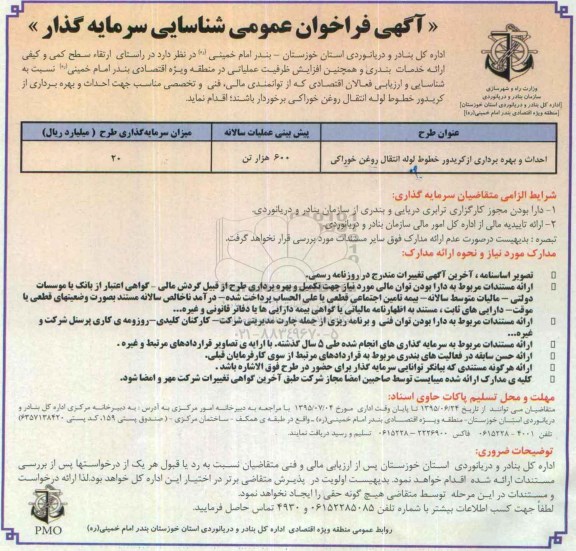 « آگهی فراخوان عمومی شناسایی سرمایه گذار »
وزارت راه و شهرسازی
سازمان بنادر و دریانوردی
اداره کل بنادر و دریانوردی استان خوزستان
(منطقه ویژه اقتصادی بندر امام خمینی(ره
اداره کل بنادر و دریانوردی استان خوزستان – بندر امام خمینی (ره) در نظر دارد در راستای ارتقاء سطح کمی و کیفی
ارائه خدمات بندری و همچنین افزایش ظرفیت عملیاتی در منطقه ویژه اقتصادی بندر امام خمینی(ره) نسبت به
شناسایی و ارزیابی فعالان اقتصادی که از توانمندی مالی، فنی و تخصصی مناسب جهت احداث و بهره برداری از
کریدور خطوط لوله انتقال روغن خوراکی برخوردار باشند؛ اقدام نماید.
عنوان طرح
پیش بینی عملیات سالانه
میزان سرمایه‌گذاری طرح ( میلیارد ریال)
احداث و بهره برداری از کریدور خطوط لوله انتقال روغن خوراکی
۶۰۰ هزار تن
۲۰
شرایط الزامی متقاضیان سرمایه گذاری:
۱- دارا بودن مجوز کارگزاری ترابری دریایی و بندری از سازمان بنادر و دریانوردی.
۲- ارائه تاییدیه مالی از اداره کل امور مالی سازمان بنادر و دریانوردی.
تبصره : بدیهیست درصورت عدم ارائه مدارک فوق سایر مستندات مورد بررسی قرار نخواهد گرفت.
مدارک مورد نیاز و نحوه ارائه مدارک:
تصویر اساسنامه ، آخرین آگهی تغییرات مندرج در روزنامه رسمی.
ارائه مستندات مربوط به دارا بودن توان مالی مورد نیاز جهت تکمیل و بهره برداری طرح از قبیل گردش مالی – گواهی اعتبار از بانک یا موسسات
دولتی – مالیات متوسط سالانه – بیمه تامین اجتماعی قطعی یا علی الحساب پرداخت شده – درآمد ناخالص سالانه مستند بصورت وضعیتهای قطعی یا
موقت – دارایی های ثابت ، مستند به اظهارنامه مالیاتی یا گواهی بیمه دارایی ها یا دفاتر قانونی و غیره...
ارائه مستندات مربوط به دارا بودن توان فنی و برنامه ریزی از جمله چارت مدیریتی شرکت – کارکنان کلیدی – روزومه ی کاری پرسنل شرکت و
غیره...
ارائه مستندات مربوط به سرمایه گذاری های انجام شده طی ۵ سال گذشته، با ارایه ی تصاویر قراردادهای مرتبط و غیره .
ارائه حسن سابقه در فعالیت های بندری مربوط به قراردادهای مرتبط از سوی کارفرمایان قبلی.
ارائه هرگونه مستندی که بیانگر توانایی سرمایه گذار برای حضور در طرح فوق الاشاره باشد .
کلیه ی مدارک ارائه شده میبایست توسط صاحبین امضا مجاز شرکت طبق آخرین گواهی تغییرات شرکت مهر و امضا شود.
مهلت و محل تسلیم پاکات حاوی اسناد:
متقاضیان می توانند از تاریخ ۱۳۹۵/۰۶/۲۴ تا پایان وقت اداری مورخ ۱۳۹۵/۰۷/۰۴ با مراجعه به دبیرخانه امور مرکزی به آدرس : به دبیرخانه مرکزی اداره کل بنادر و
دریانوردی استان خوزستان- منطقه ویژه اقتصادی بندر امام خمینی(ره) ـ واقع در طبقه ی همکف - ساختمان مرکزی - ( صندوق پستی ۱۵۹، کد پستی ۶۳۵۷۱۳۸۴۲۰)
تلفن ۴۰۰۱ - ۰۶۱۵۲۲۸ فاکس ۲۲۲۶۹۰۰-۰۶۱۵۲۲۸ تسلیم و رسید دریافت نمایند.
توضیحات ضروری:
اداره کل بنادر و دریانوردی استان خوزستان پس از ارزیابی مالی و فنی متقاضیان نسبت به رد یا قبول هر یک از درخواستها پس از بررسی
مستندات ارائه شده اقدام خواهد نمود. بدیهیست اولویت در پذیرش متقاضی برتر در اختیار این اداره کل خواهد بود،لذا ارائه درخواست
و مستندات در این مرحله توسط متقاضی هیچ گونه حقی را ایجاد نخواهد نمود.
لطفا جهت کسب اطلاعات بیشتر با شماره تلفن ۰۶۱۵۲۲۸۵۰۸۵ و ۴۹۳۰ تماس حاصل فرمایید.
PMO
روابط عمومی منطقه ویژه اقتصادی اداره کل بنادر و دریانوردی استان خوزستان بندر امام خمینی(ره)